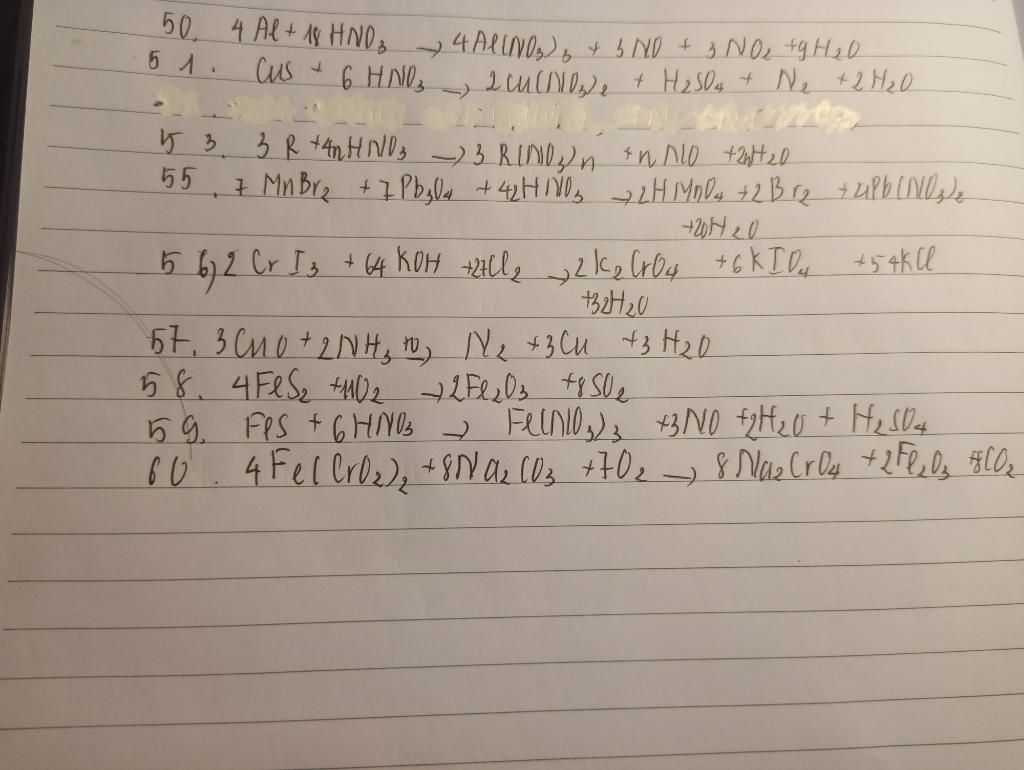 50. 4 Al + 18 HNO₃ → 4Al(NO₃)₃ + 3NO + 3NO₂ +9H₂O
51. CuS + 6 HNO₃ → 2Cu(NO₃)₂ + H₂SO₄ + N₂ +2H₂O
53. 3 R +4nHNO₃ → 3 R(NO₃)n +n NO +2nH₂O
55. 7 MnBr₂ +7Pb₃O₄ +42HNO₃ → 2HMnO₄ +2Br₂ +21Pb(NO₃)₂
+20H₂O
56, 2 CrI₃ +64 KOH +27Cl₂ → 2K₂CrO₄ +6KIO₄ +54KCl
+32H₂O
57. 3CuO +2NH₃ → N₂ +3Cu +3H₂O
58. 4FeS₂ +11O₂ → 2Fe₂O₃ +8SO₂
59. FeS + 6HNO₃ → Fe(NO₃)₃ +3NO +2H₂O + H₂SO₄
60. 4Fe(CrO₂)₂ +8Na₂CO₃ +7O₂ → 8Na₂CrO₄ +2Fe₂O₃ +8CO₂